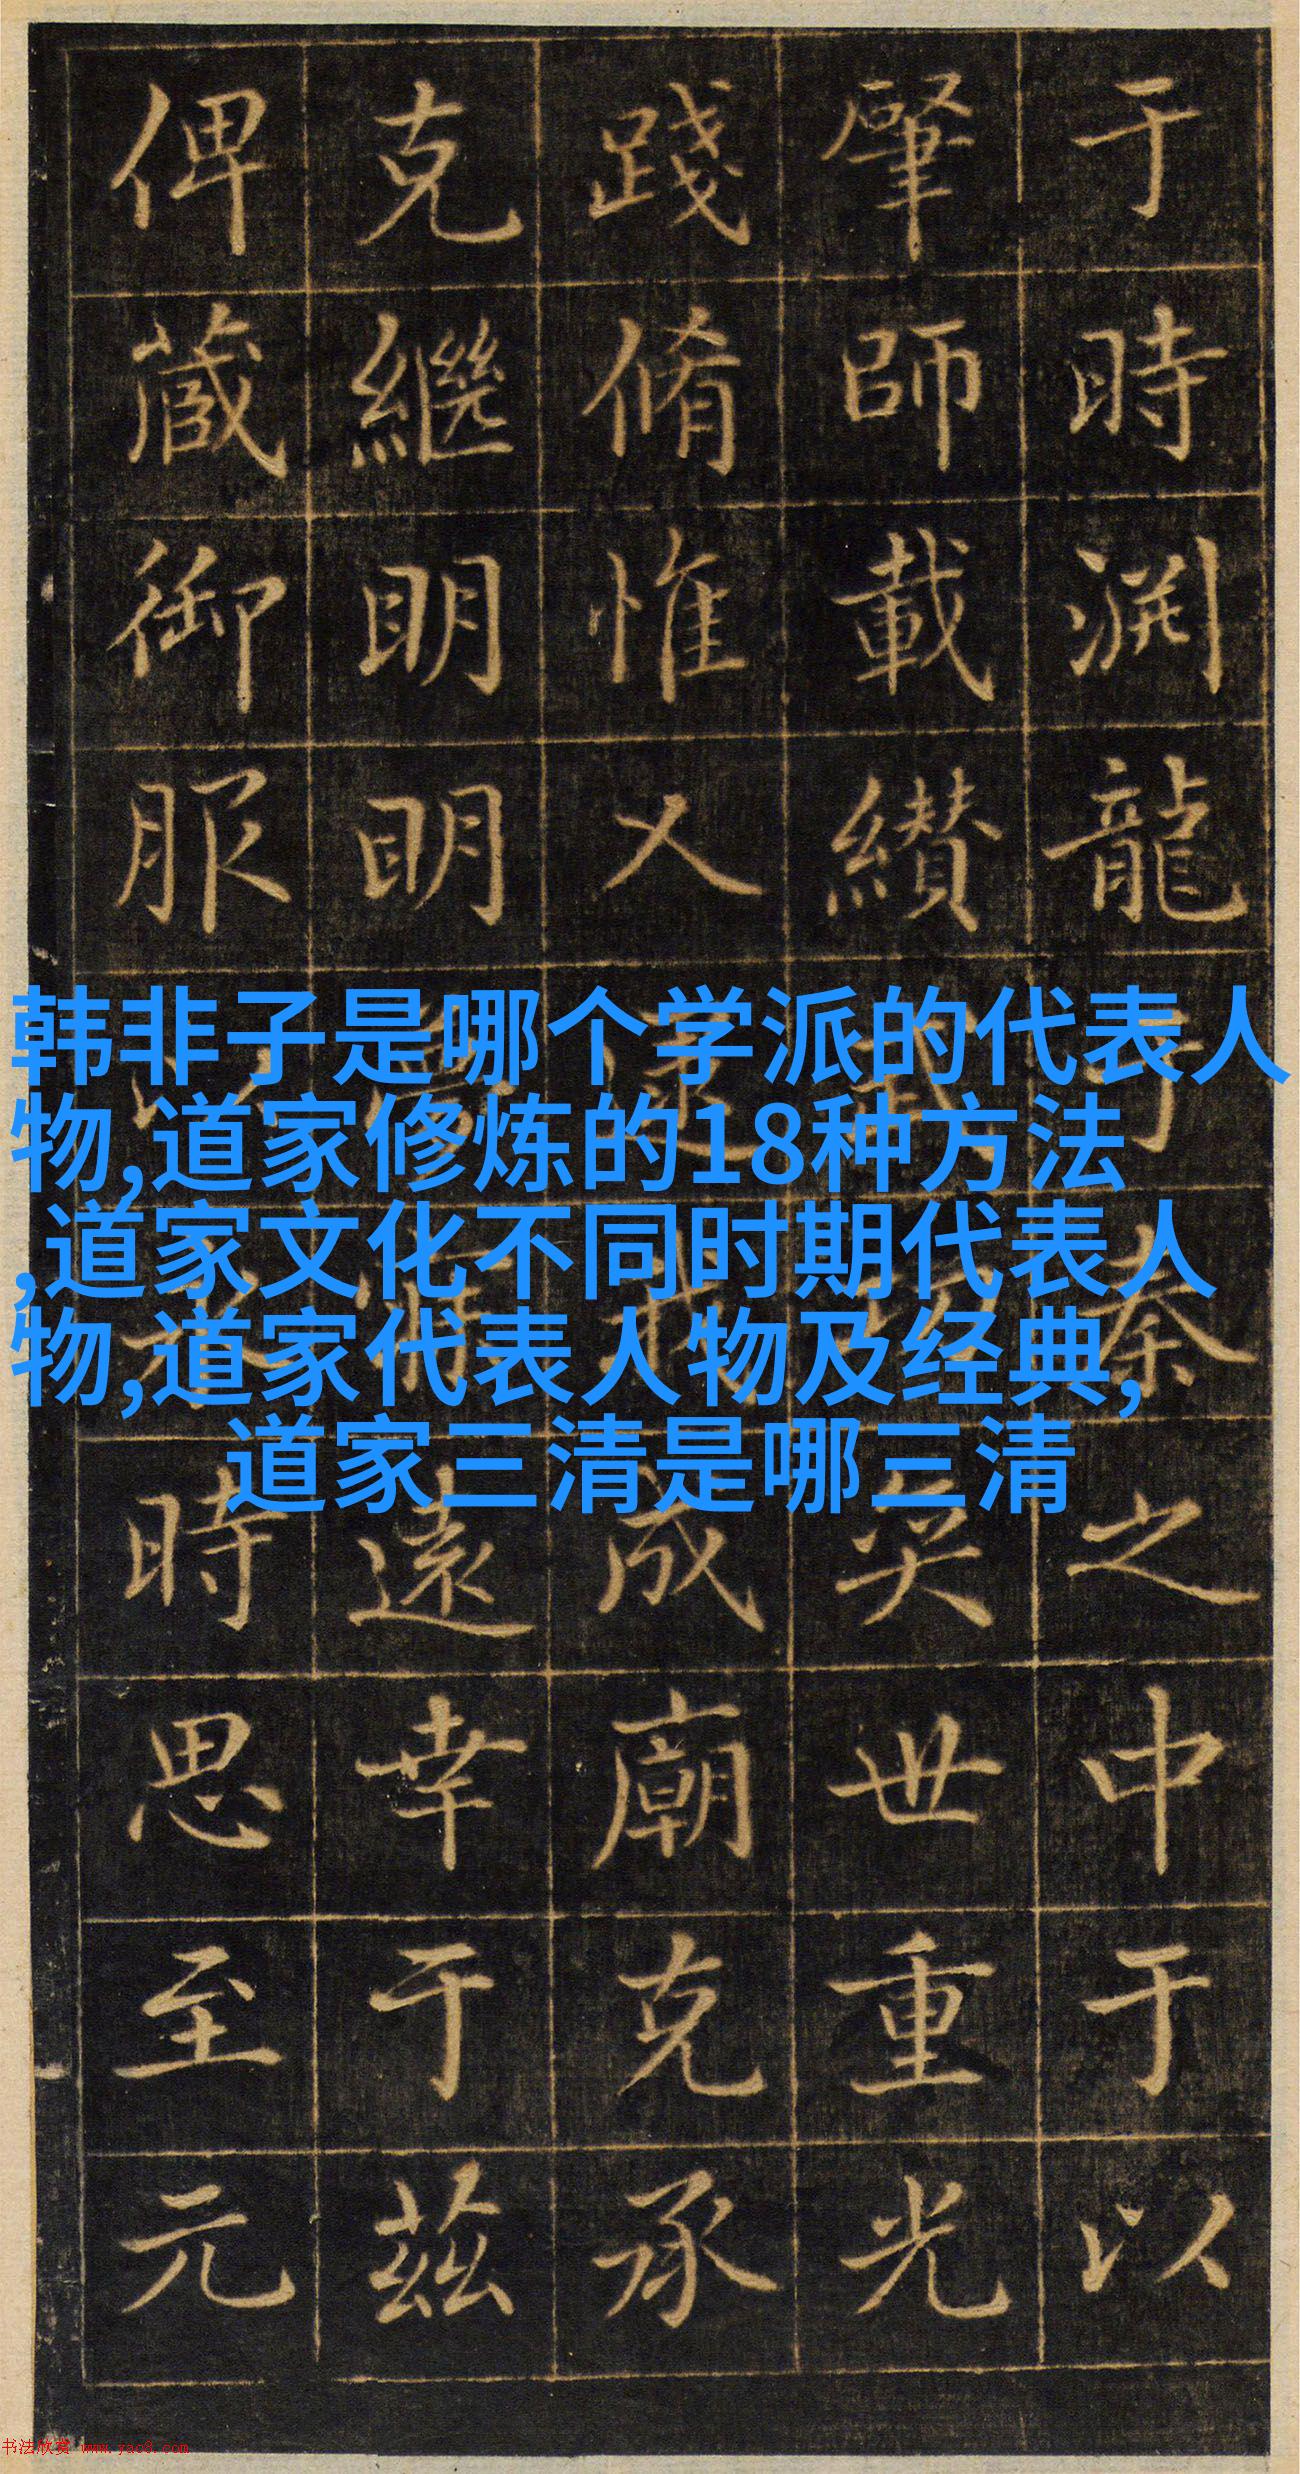 于時淵龍于秦之中于以
肇師載纘奕世重光
踐脩惟乂逮我成廟克承
克繼明明遠幸于茲
俾蕆御服時思至元
韩非子是哪个学派的代表人
物,道家修炼的18种方法
,道家文化不同时期代表人
物,道家代表人物及经典,
道家三清是哪三清
书法欣赏 www.yac8.com